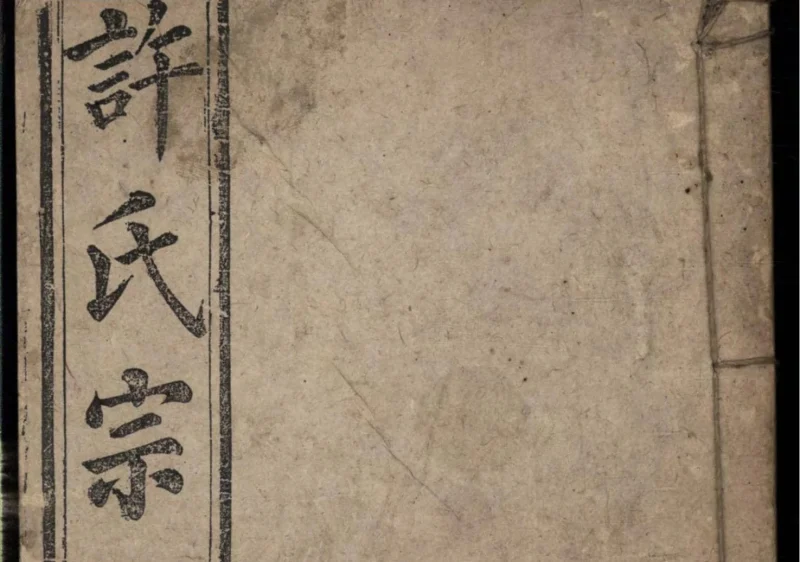 許氏宗